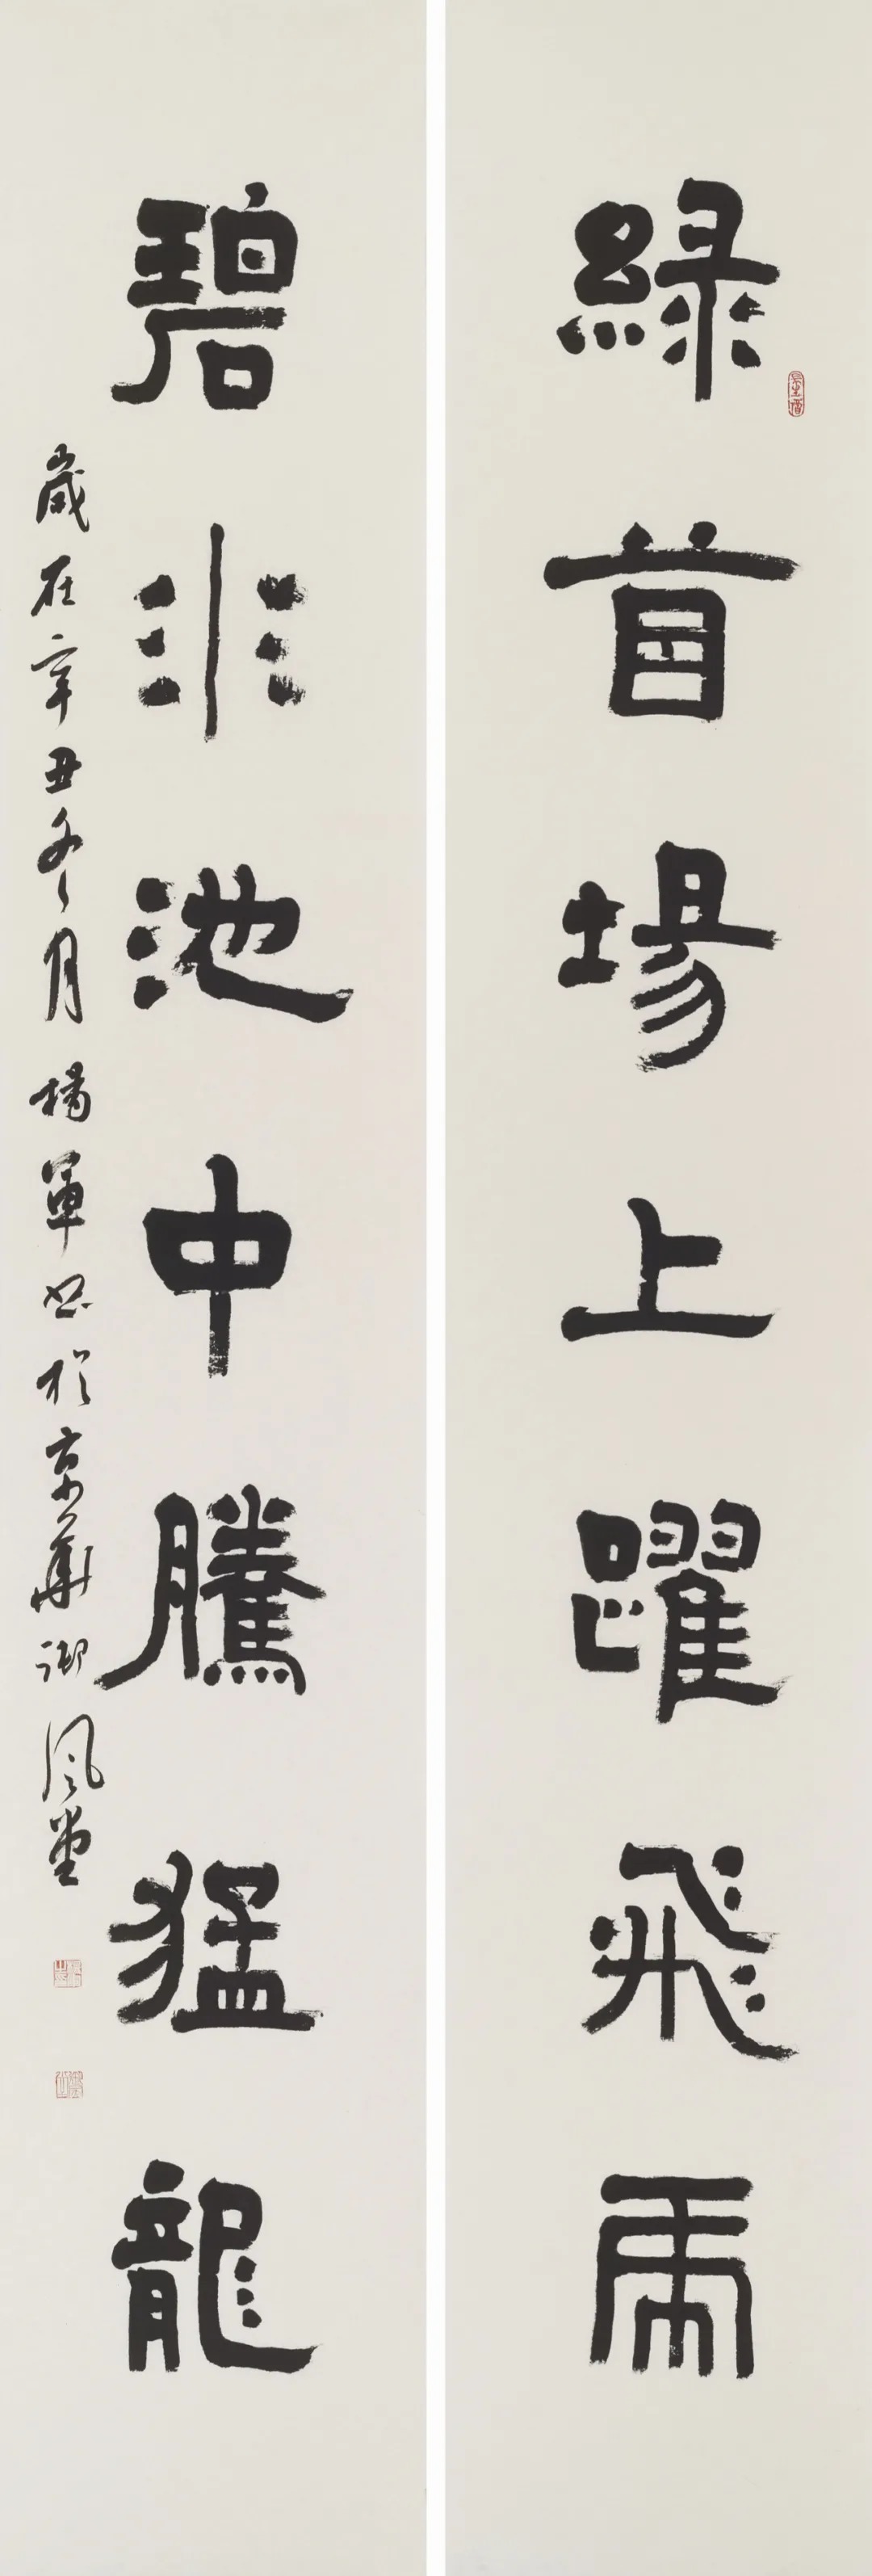 綠茵場上躍飛虎
碧水池中騰猛龍
歲在辛丑冬月楊軍书於京華御風堂